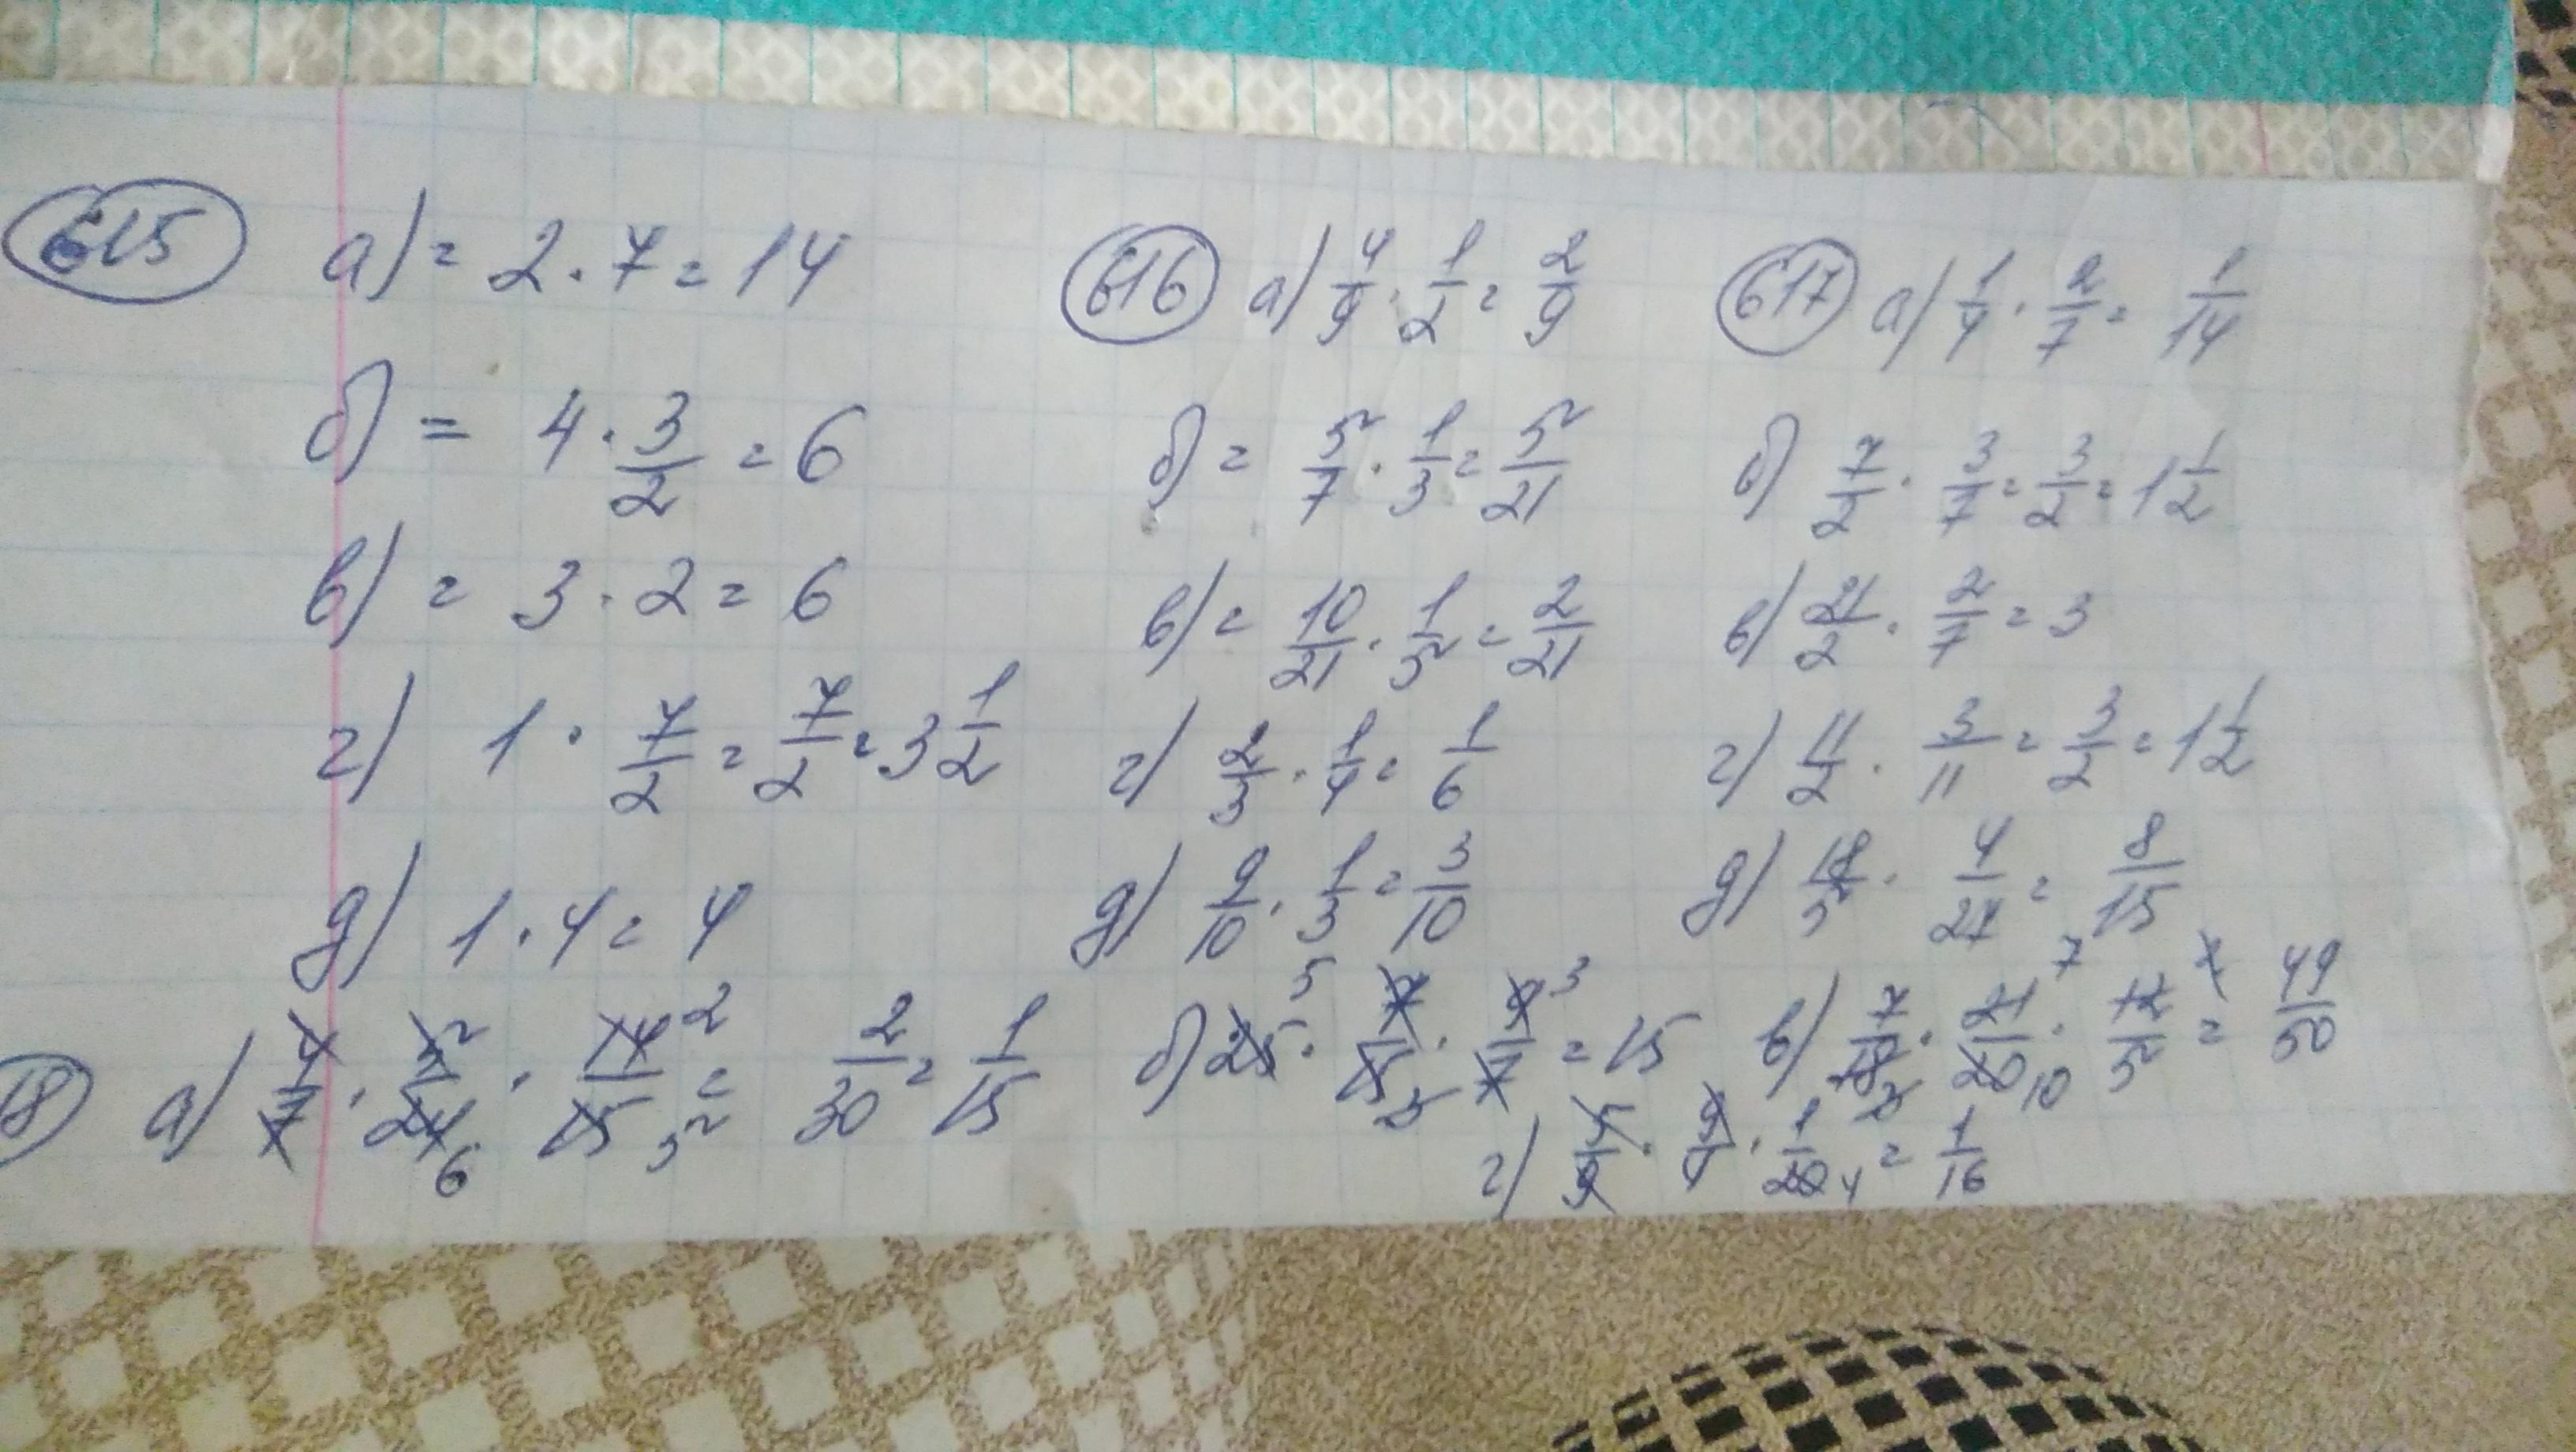 615 а) = 2 · 7 = 14
б) = 4 · 3/2 = 6
в) = 3 · 2 = 6
г) 1 · 7/2 = 7/2 = 3 1/2
д) 1 · 4 = 4
616 а) 4/9 · 1/2 = 2/9
б) = 5/7 · 1/3 = 5/21
в) = 10/21 · 1/5 = 2/21
г) 2/3 · 1/4 = 1/6
д) 9/10 · 1/3 = 3/10
617 а) 1/4 · 2/7 = 1/14
б) 7/2 · 3/7 = 3/2 = 1 1/2
в) 21/2 · 2/7 = 3
г) 11/2 · 3/11 = 3/2 = 1 1/2
д) /5 · 4/ = 8/15
18 а) 4/7 · 5/24 · 14 2/15 5 = 2/30 = 1/15
6
б) 25 5 · 7/15 3 · 9 3/7 = 15
в) 7/18 3 · 21 7/20 10 · 12 2/5 = 49/50
г) 5/9 · 9/4 · 1/20 4 = 1/16